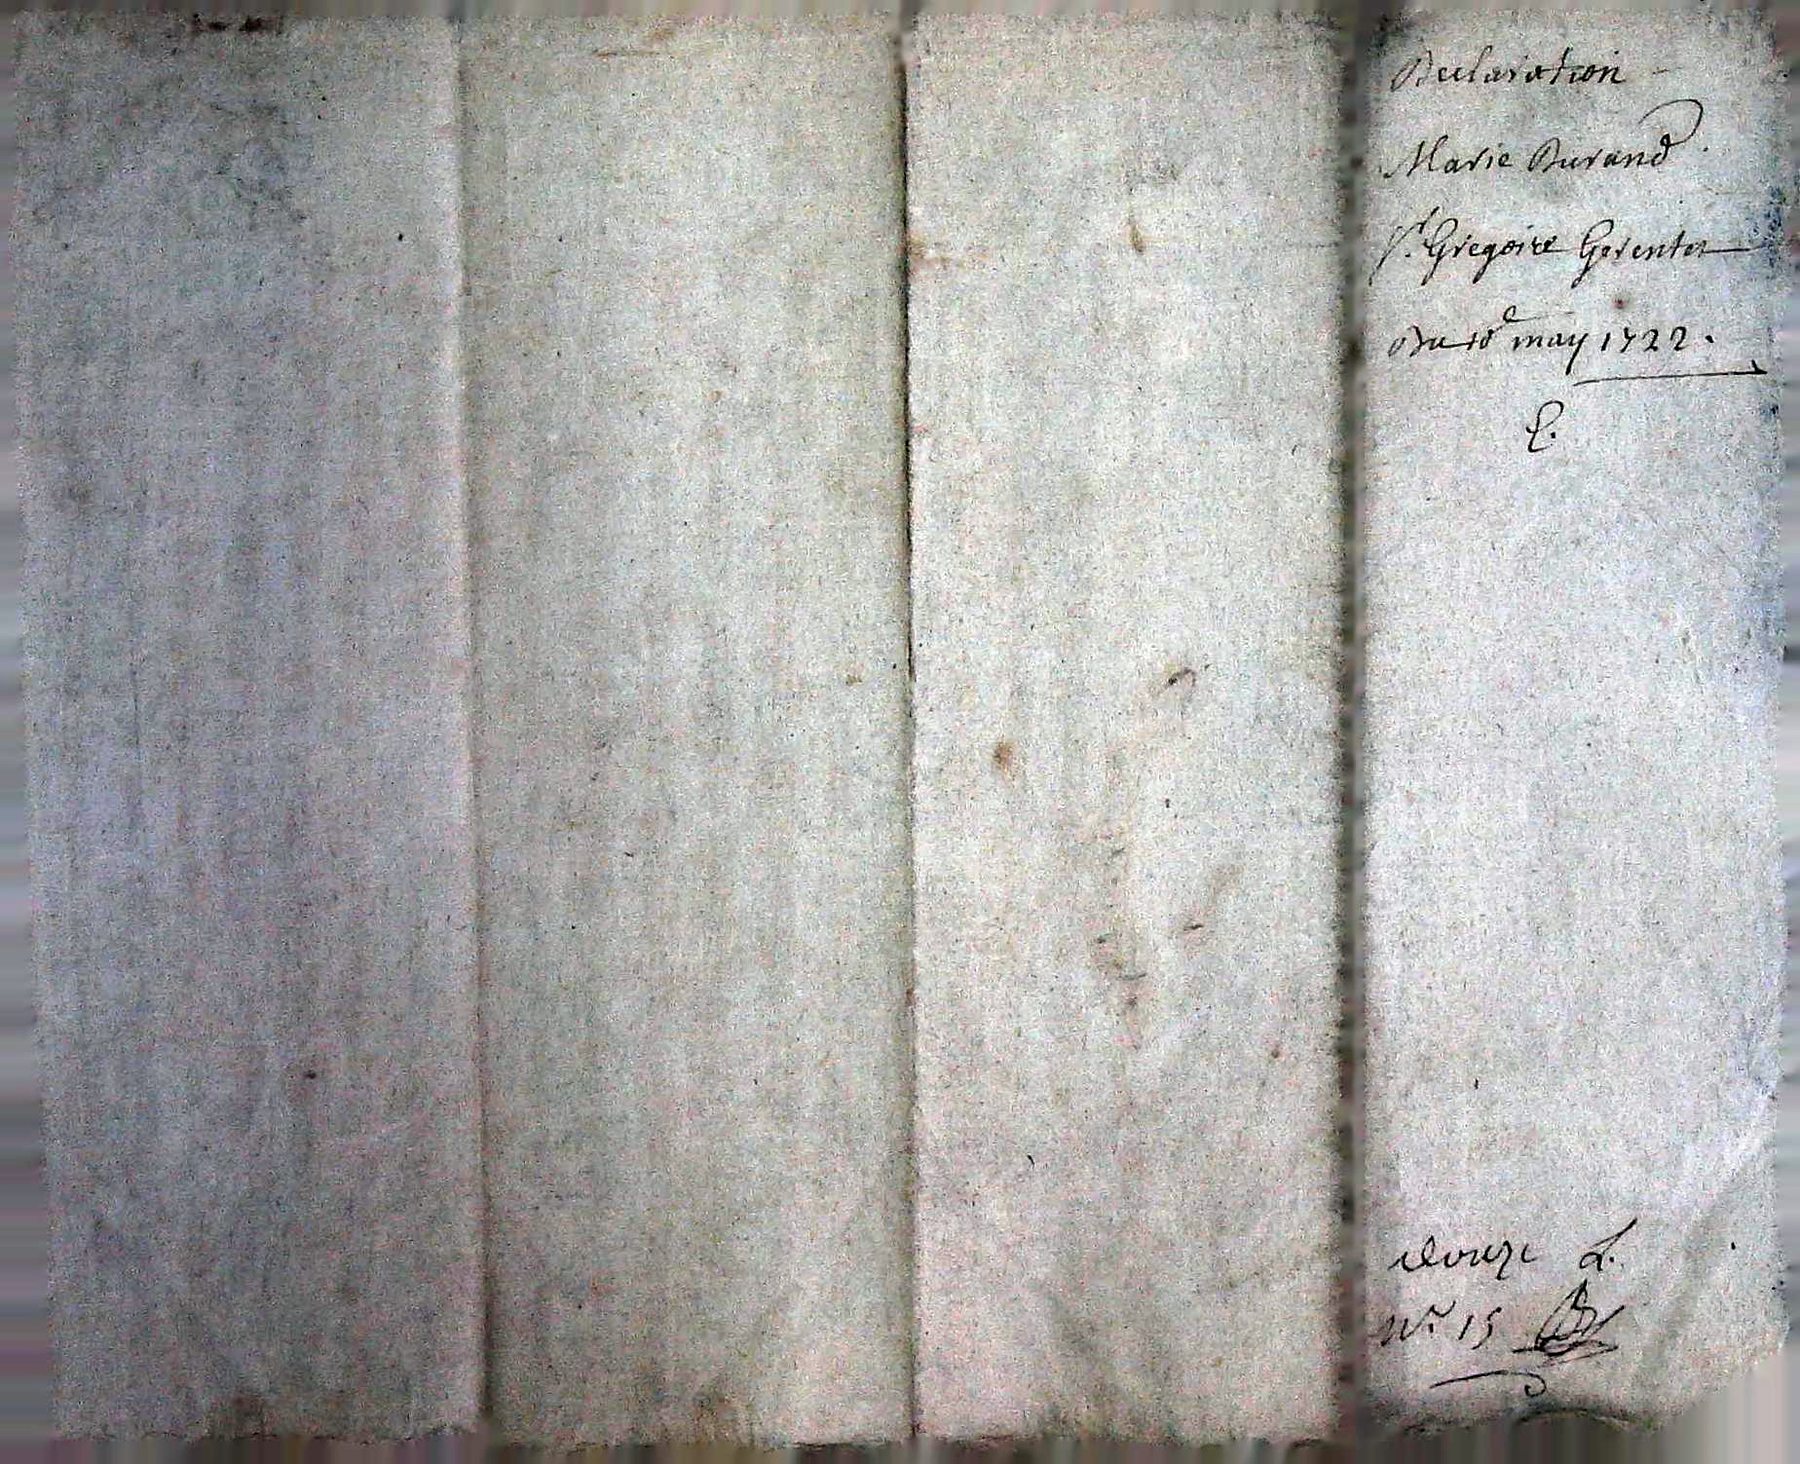 Declaration
Marie Durand.
Sr. Gregoire Gerentes
Du 10e may 1722.
E.
douze L.
No. 15